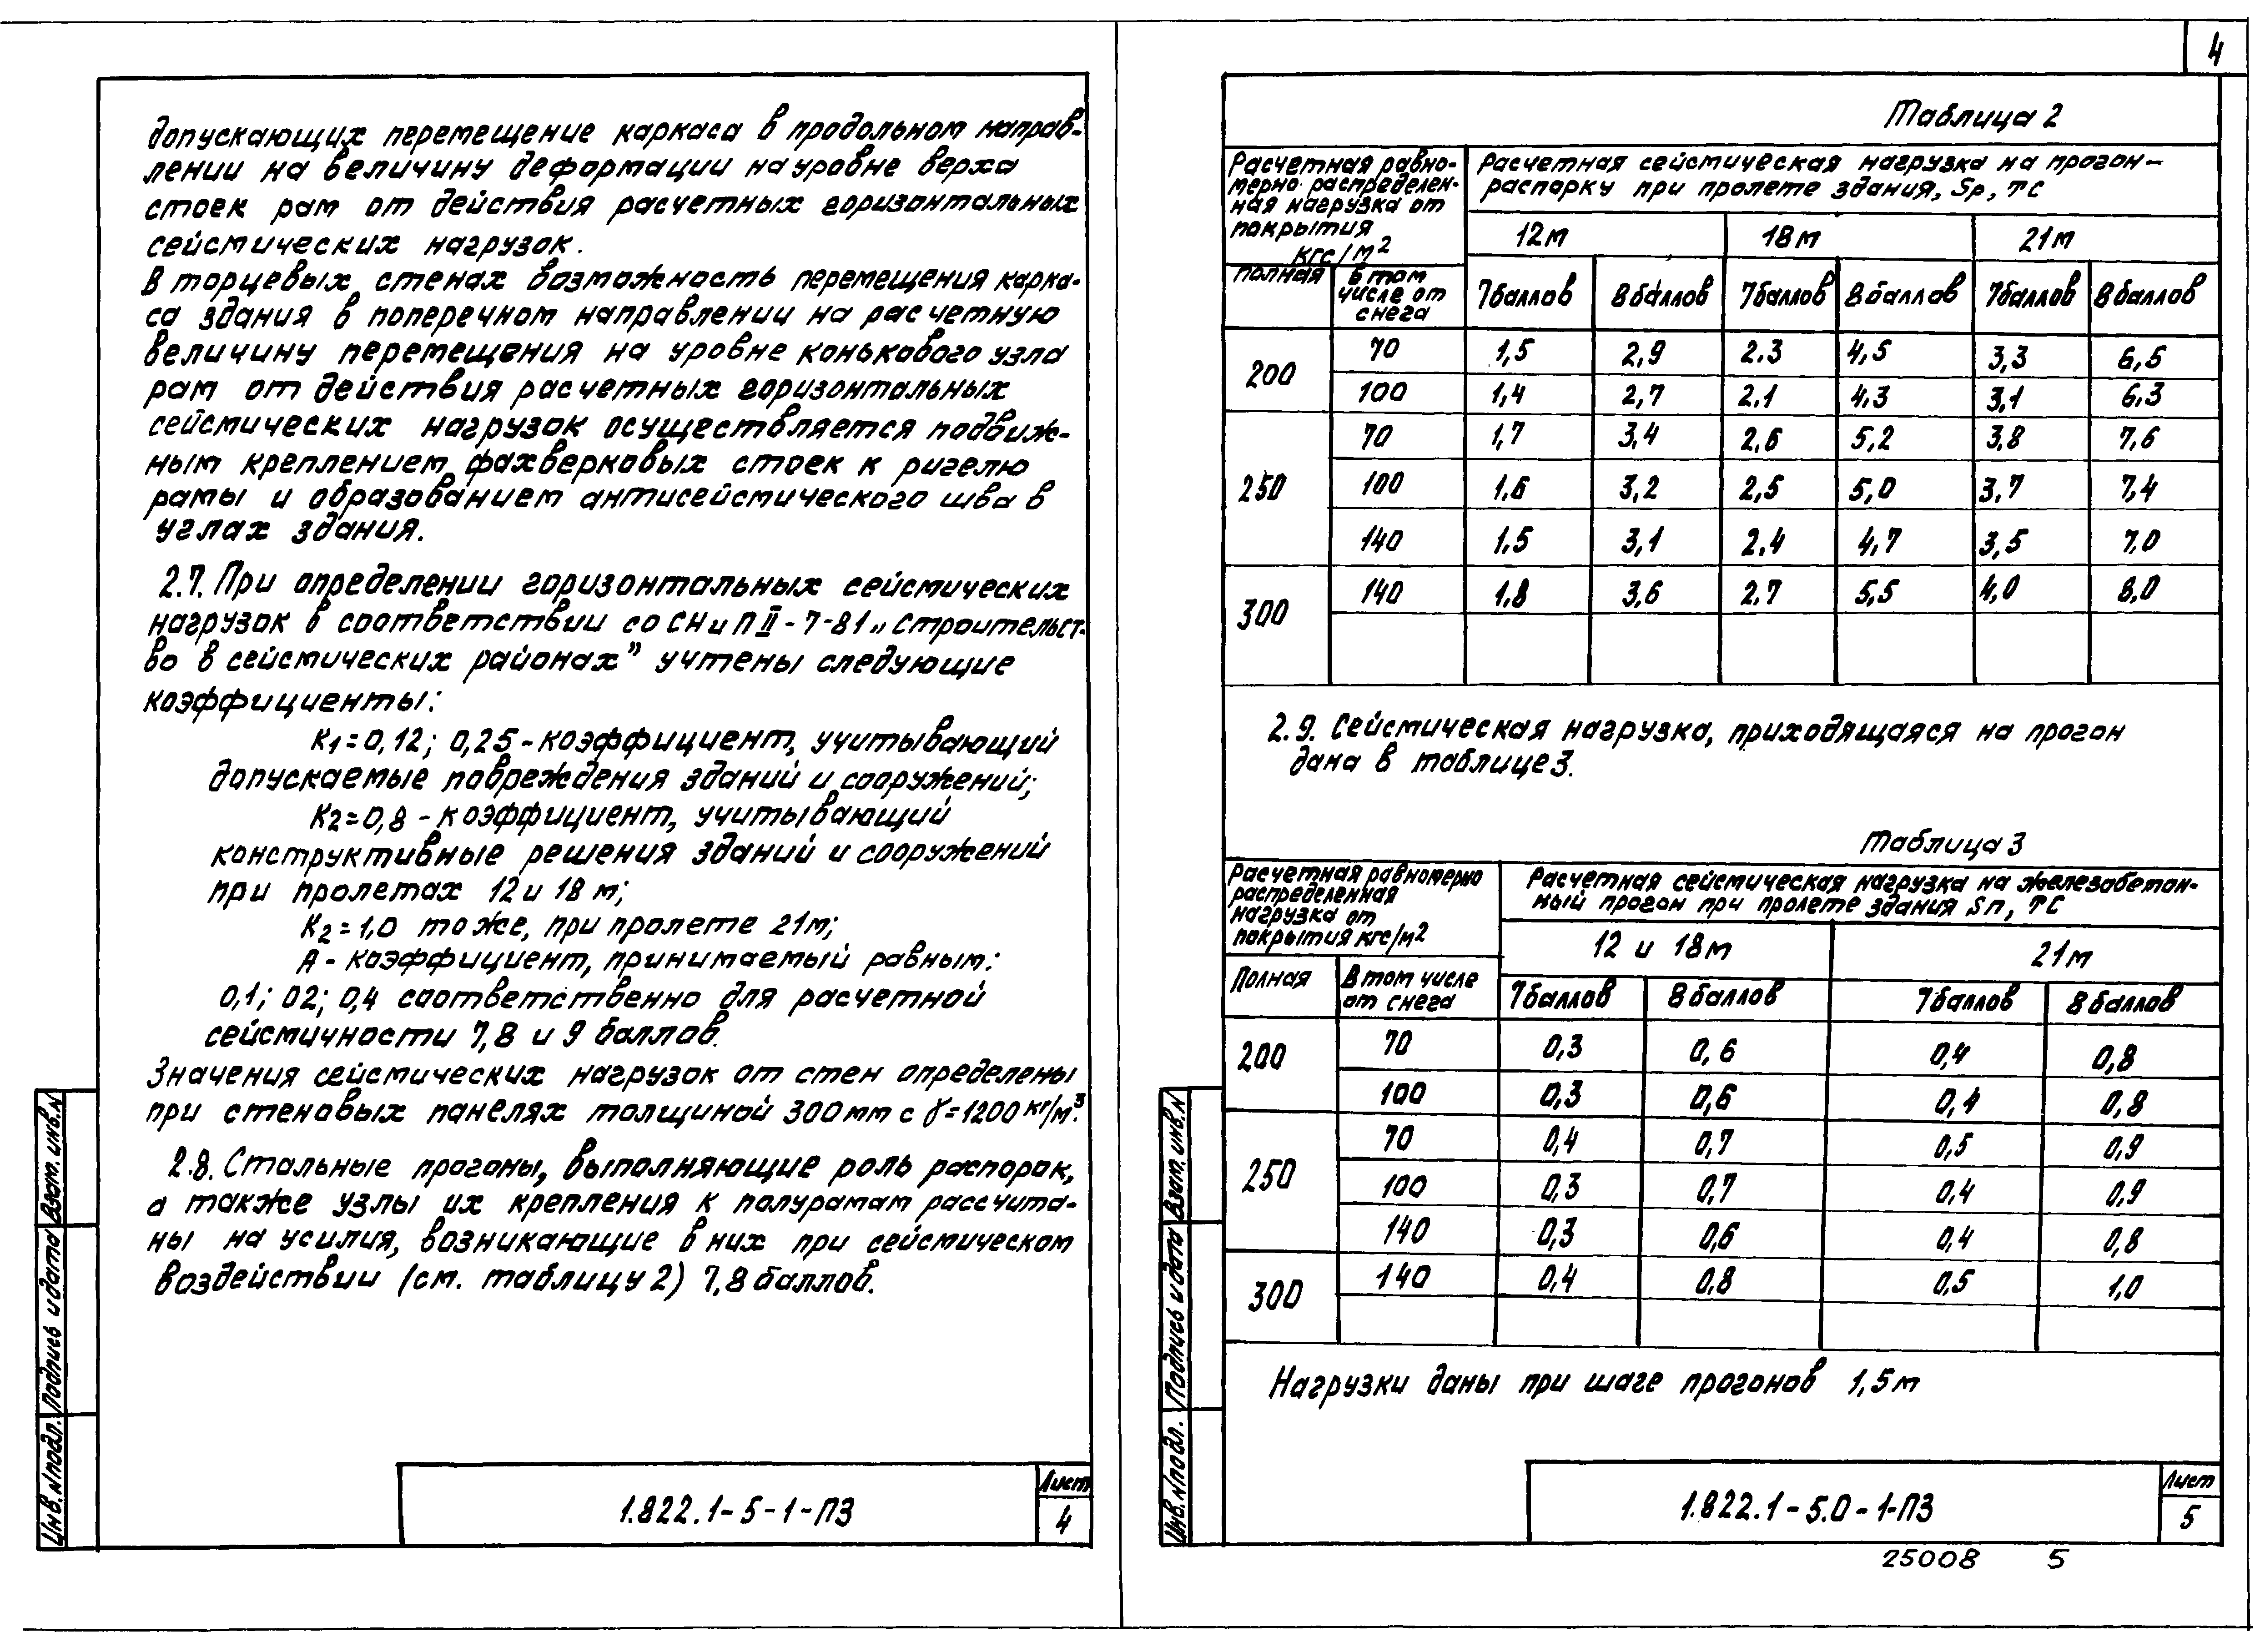 4
допускающих перемещение каркаса в продольном направ-
лении на величину деформации на уровне верха
стоек рам от действия расчетных горизонтальных
сейсмических нагрузок.
В торцевых стенах возможность перемещения карка-
са здания в поперечном направлении на расчетную
величину перемещения на уровне конькового узла
рам от действия расчетных горизонтальных
сейсмических нагрузок осуществляется подвиж-
ным креплением фахверковых стоек к ригелю
рамы и образованием антисейсмического шва в
углах здания.
2.7. При определении горизонтальных сейсмических
нагрузок в соответствии со СНиП II-7-81 „Строительст-
во в сейсмических районах" учтены следующие
коэффициенты:
К1=0,12; 0,25 - коэффициент, учитывающий
допускаемые повреждения зданий и сооружений;
К2=0,8 - коэффициент, учитывающий
конструктивные решения зданий и сооружений
при пролетах 12 и 18 м;
К2=1,0 то же, при пролете 21м;
А - коэффициент, принимаемый равным:
0,1; 02; 0,4 соответственно для расчетной
сейсмичности 7,8 и 9 баллов.
Значения сейсмических нагрузок от стен определены
при стеновых панелях толщиной 300 мм с γ=1200 кг/м³.
2.8. Стальные прогоны, выполняющие роль распорок,
а также узлы их крепления к полурамам рассчита-
ны на усилия, возникающие в них при сейсмическом
воздействии (см. таблицу 2) 7,8 баллов.
Инв.N подл. Подпись и дата Взам. инв.N
1.822.1-5-1-ПЗ
Лист
4
Таблица 2
Расчетная равно-
мерно распределен-
ная нагрузка от
покрытия
кгс/м2
Расчетная сейсмическая нагрузка на прогон-
распорку при пролете здания, Sр, тс
12м 18м 21м
полная
в том
числе от
снега
7баллов 8баллов 7баллов 8баллов 7баллов 8баллов
200 70 1,5 2,9 2.3 4,5 3,3 6,5
100 1,4 2,7 2.1 4,3 3,1 6,3
250 70 1,7 3,4 2,6 5,2 3,8 7,6
100 1,6 3,2 2,5 5,0 3,7 7,4
140 1,5 3,1 2,4 4,7 3,5 7,0
300 140 1,8 3,6 2.7 5,5 4,0 8,0
2.9. Сейсмическая нагрузка, приходящаяся на прогон
дана в таблице 3.
Таблица 3
Расчетная равномерно
распределенная
нагрузка от
покрытия кгс/м2
Расчетная сейсмическая нагрузка на железобетон-
ный прогон при пролете здания Sп, тс
12 и 18м 21м
Полная
В том числе
от снега
7баллов 8 баллов 7баллов 8 баллов
200 70 0,3 0,6 0,4 0,8
100 0,3 0,6 0,4 0,8
250 70 0,4 0,7 0,5 0,9
100 0,3 0,7 0,4 0,9
140 0,3 0,6 0,4 0,8
300 140 0,4 0,8 0,5 1,0
Нагрузки даны при шаге прогонов 1,5м
Инв.N подл. Подпись и дата Взам. инв.N
1.822.1-5.0-1-ПЗ
Лист
5
25008 5